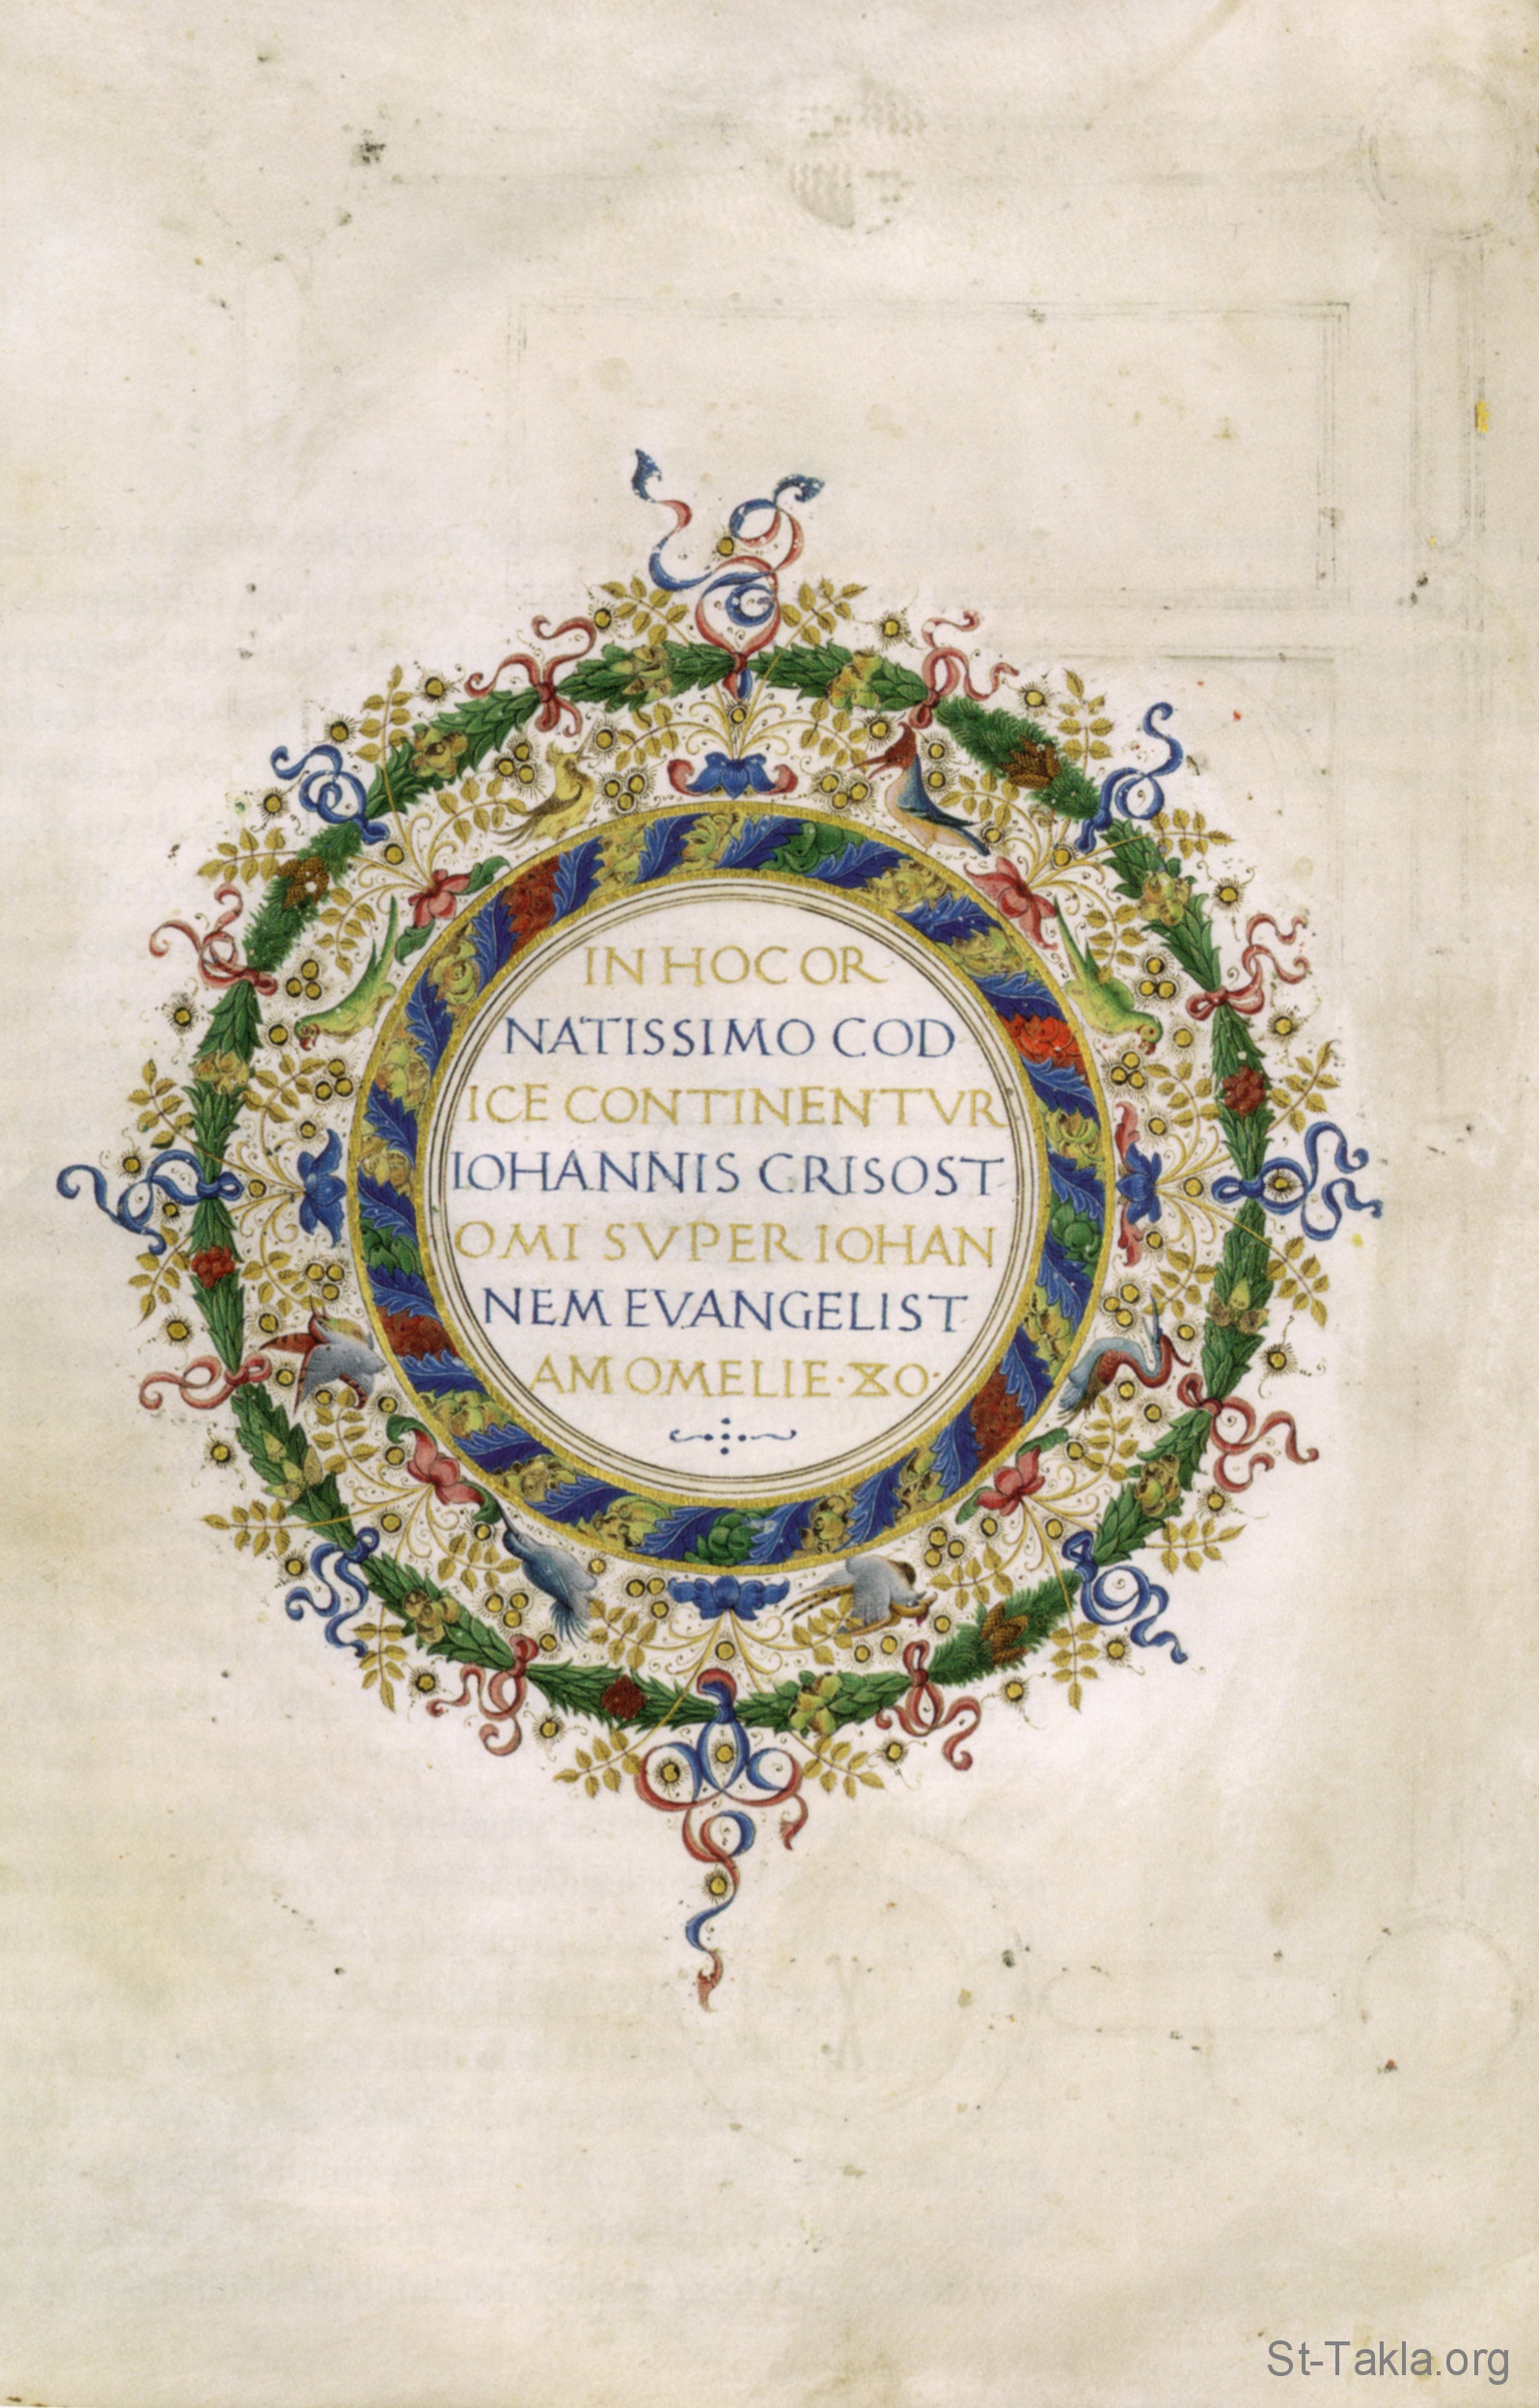 IN HOC OR
NATISSIMO COD
ICE CONTINENTVR
IOHANNIS CRISOST
OMI SVPER IOHAN
NEM EVANGELIST
AM OMELIE·XO·
St-Takla.org